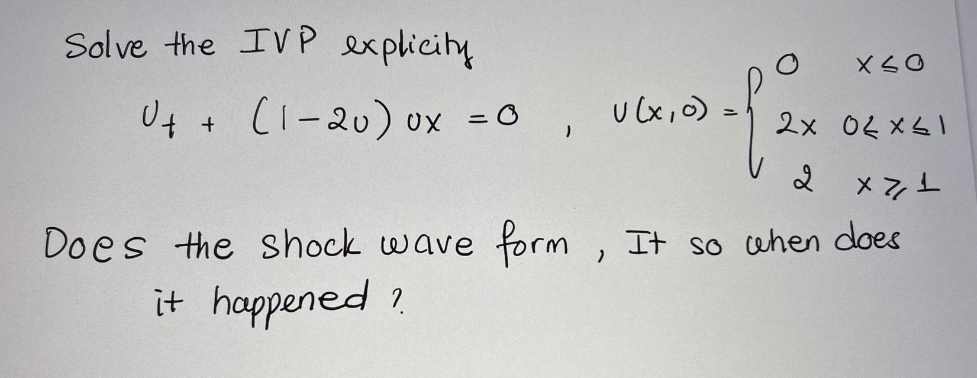 Solve the IVP explicity
Ut + (1-2u) ux = 0 , U(x,0) = { 0 x≤0
2x 0≤x≤1
2 x≥1
Does the shock wave form , It so when does
it happened ?